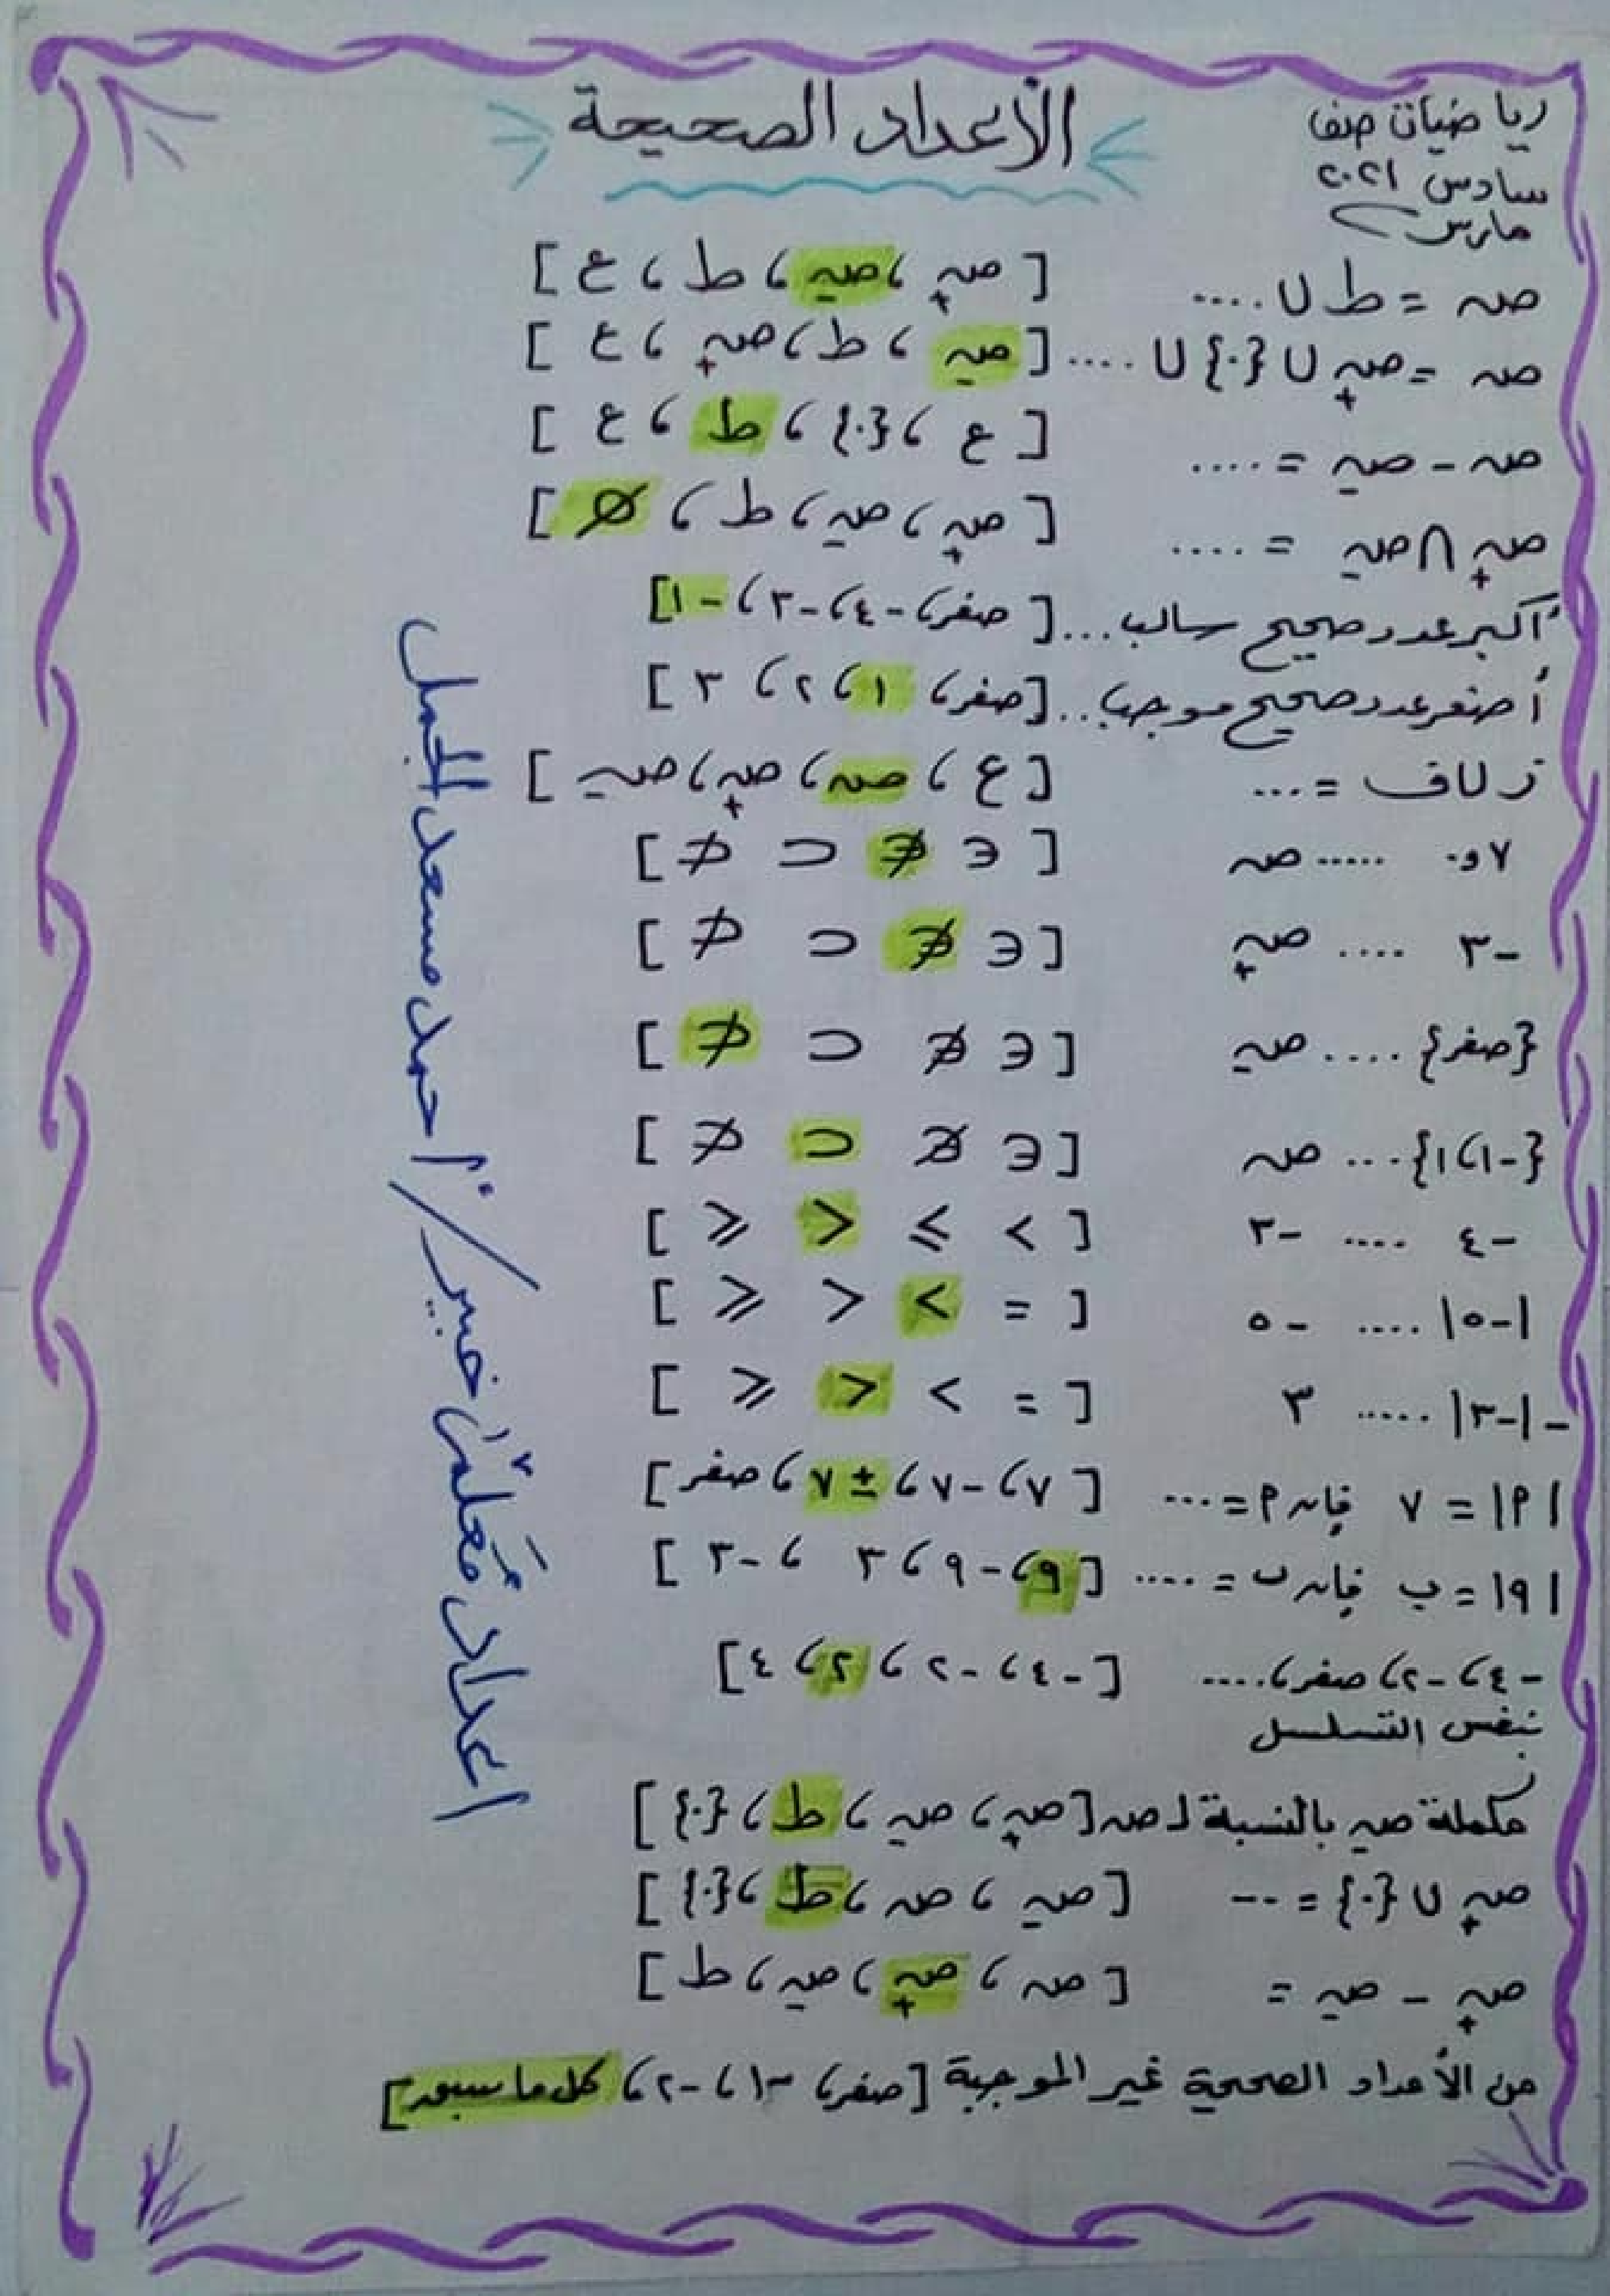 رياضيات صف
سادس ٢٠٢١
مارس
الأعداد الصحيحة
صـ = ط ∪ .... [ صـ+ ، صـ- ، ط ، ع ]
صـ = صـ+ ∪ {٠} ∪ .... [ صـ- ، ط ، صـ+ ، ع ]
صـ - صـ- = .... [ ع ، {٠} ، ط ، ع ]
صـ+ ∩ صـ- = .... [ صـ+ ، صـ- ، ط ، ∅ ]
أكبر عدد صحيح سالب ... [ صفر ، -٤ ، -٣ ، -١ ]
أصغر عدد صحيح موجب .. [ صفر ، ١ ، ٢ ، ٣ ]
ز ∪ ف = ... [ ع ، صـ ، صـ+ ، صـ- ]
٠,٧ ..... صـ [ ∈ ∉ ⊂ ⊄ ]
-٣ .... صـ+ [ ∈ ∉ ⊂ ⊄ ]
{صفر} .... صـ- [ ∈ ∉ ⊂ ⊄ ]
{-١ ، ١} ... صـ [ ∈ ∉ ⊂ ⊄ ]
-٤ .... -٣ [ < ≤ > ≥ ]
|-٥| .... -٥ [ = < > ≥ ]
-|-٣| ..... ٣ [ = < > ≥ ]
|م| = ٧ فإن م = ... [ ٧ ، -٧ ، ±٧ ، صفر ]
|٩| = ب فإن ب = .... [ ٩ ، -٩ ، ٣ ، -٣ ]
-٤ ، -٢ ، صفر ، .... [ -٤ ، -٢ ، ٢ ، ٤ ]
بنفس التسلسل
مكملة صـ- بالنسبة لـ صـ [ صـ+ ، صـ- ، ط ، {٠} ]
صـ+ ∪ {٠} = -- [ صـ- ، صـ ، ط ، {٠} ]
صـ+ - صـ- = [ صـ ، صـ+ ، صـ- ، ط ]
من الأعداد الصحيحة غير الموجبة [ صفر ، -١ ، -٢ ، كل ما سبق ]
إعداد مُعلم خبير / أ. احمد مسعد الجمل